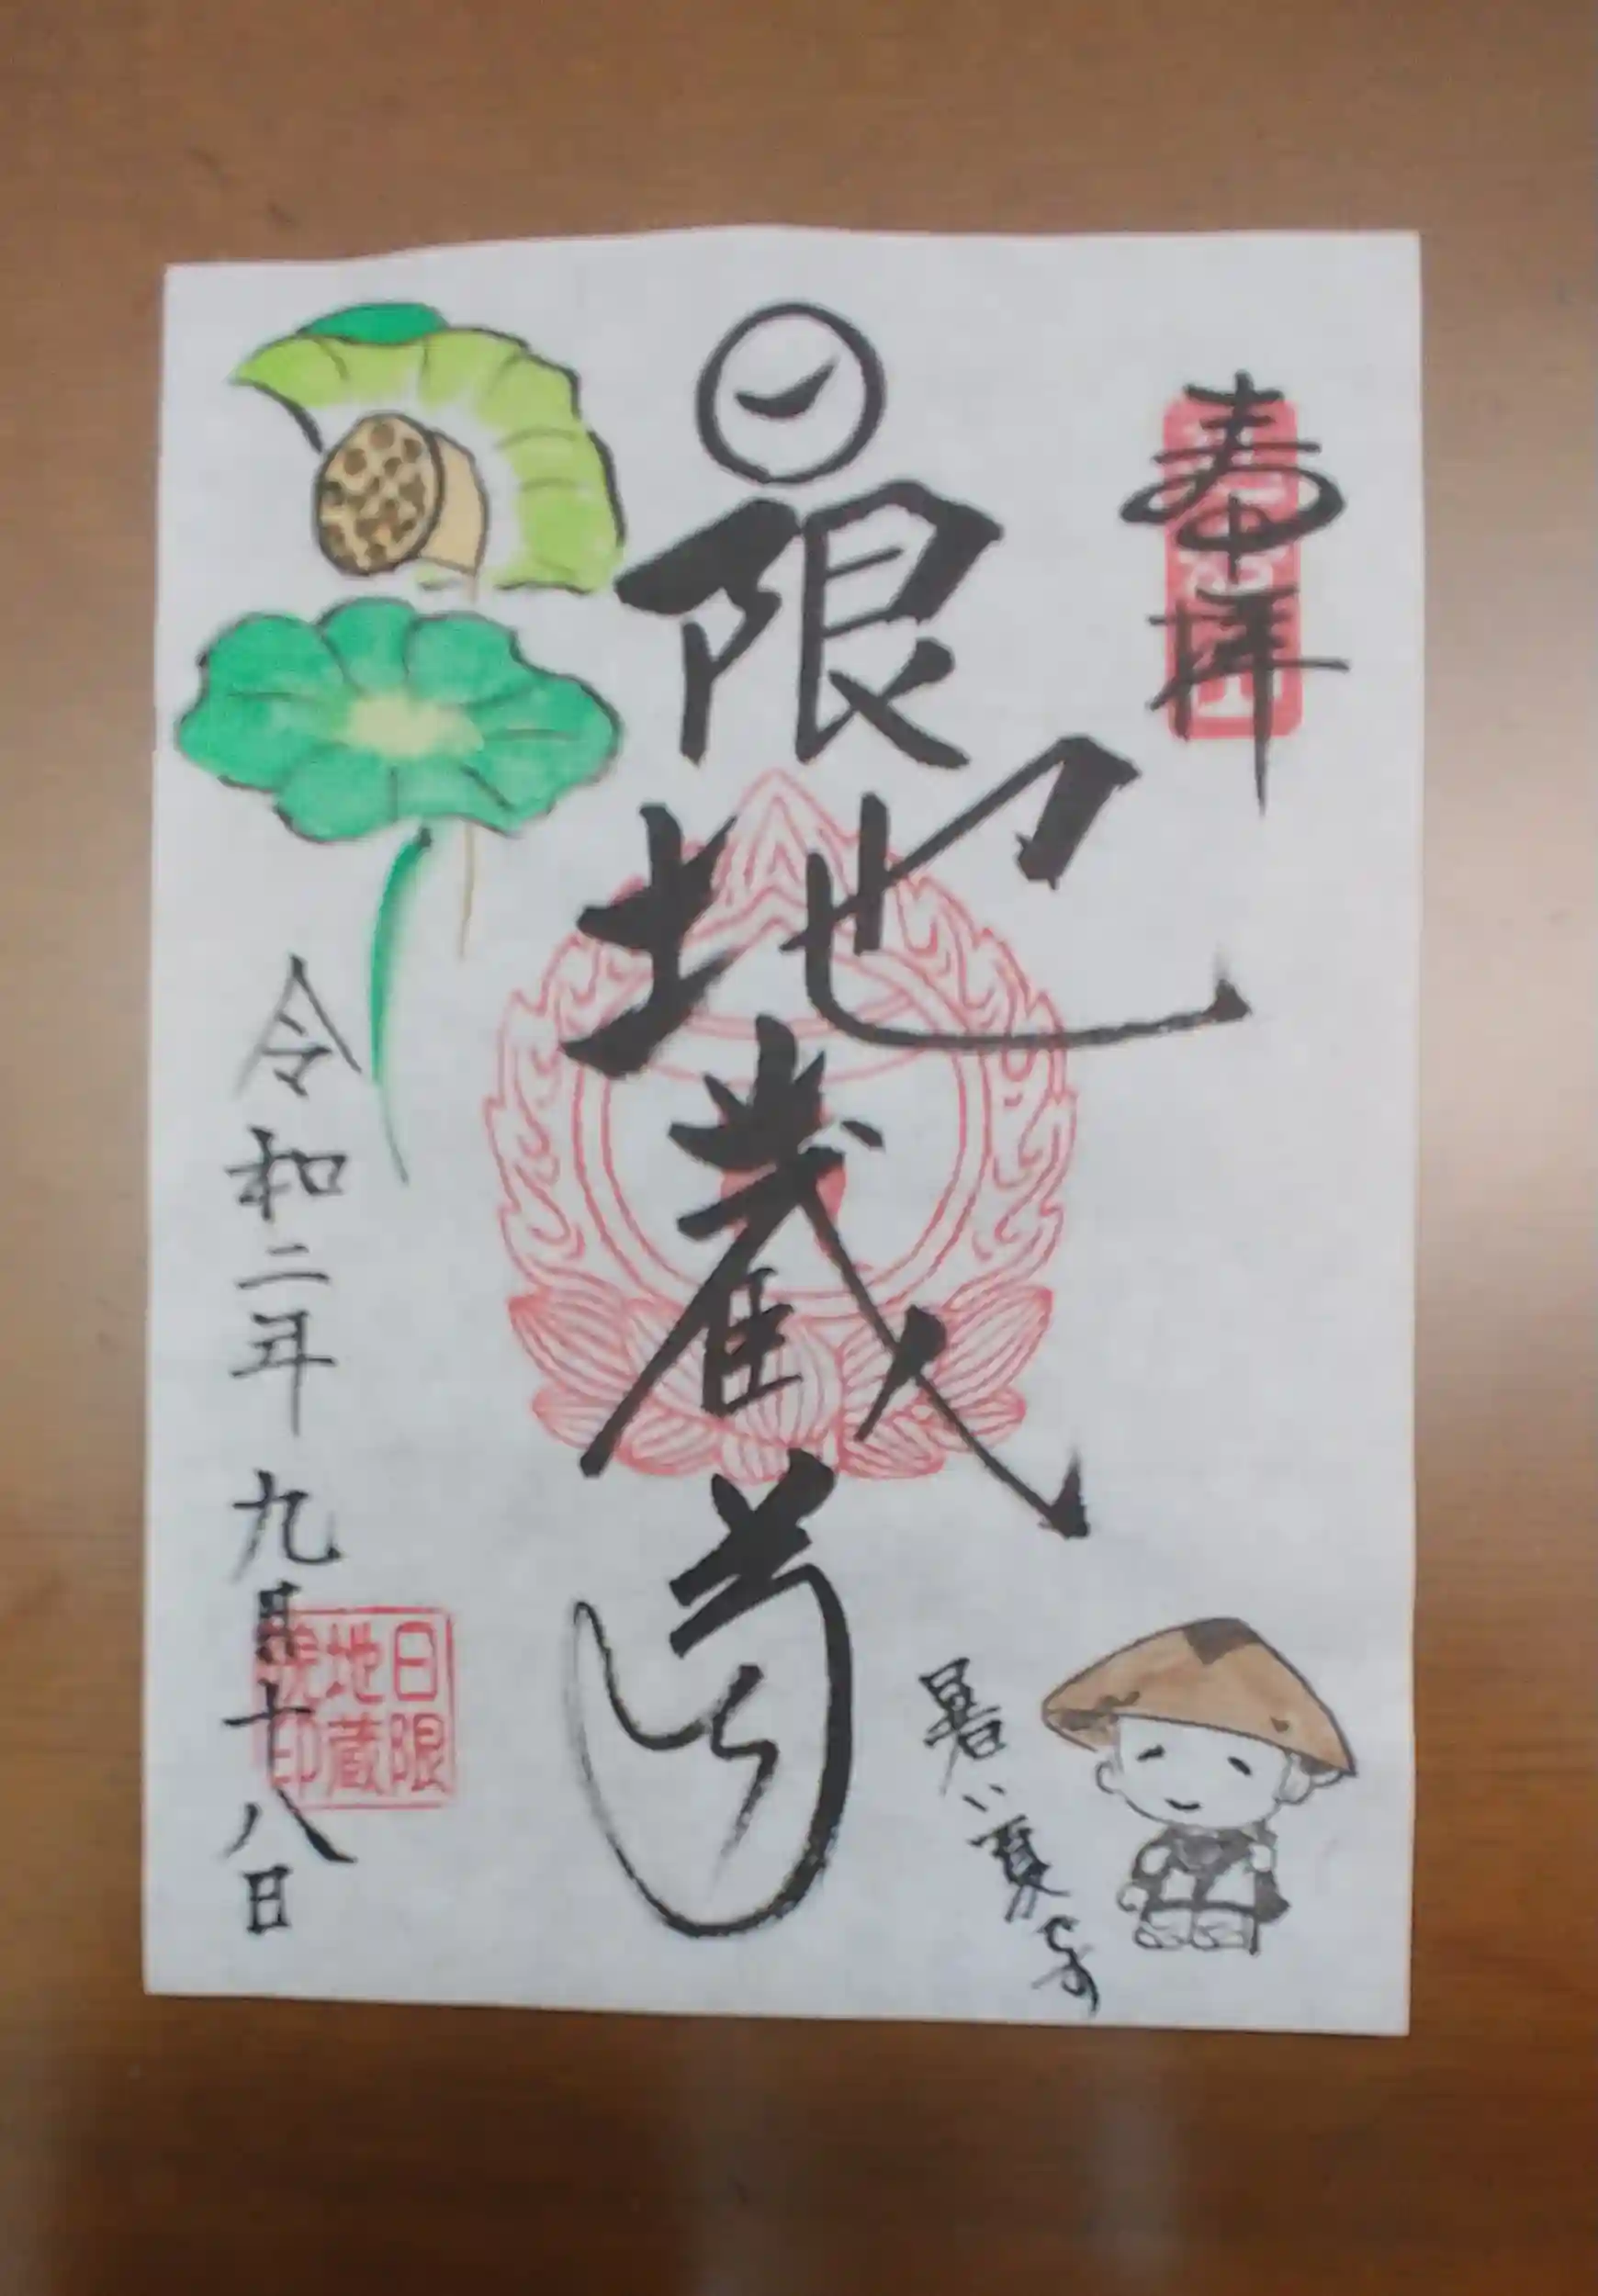 奉拝
日限地蔵尊
暑い夏
令和二年九月十八日
日限
地蔵